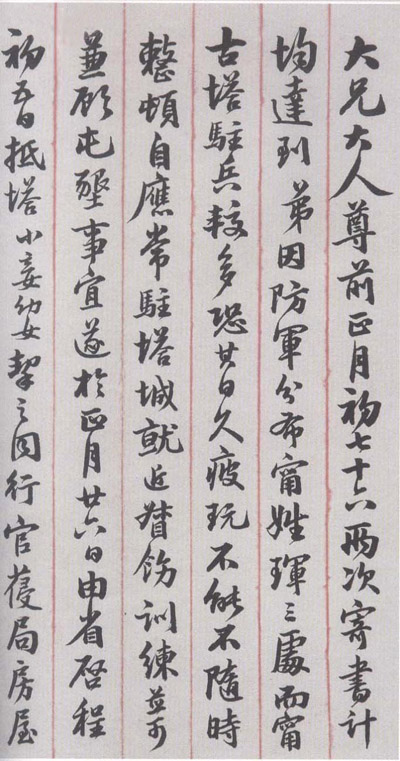 大兄大人尊前正月初七十六兩次寄書計
均達到弟因防軍分布甯姓琿三處而甯
古塔駐兵較多恐其日久疲玩不能不隨時
整頓自應常駐塔城就近督飭訓練並可
兼顧屯墾事宜遂於正月廿六日由省啓程
初五日抵塔小妾幼女挈之同行官舊局房屋